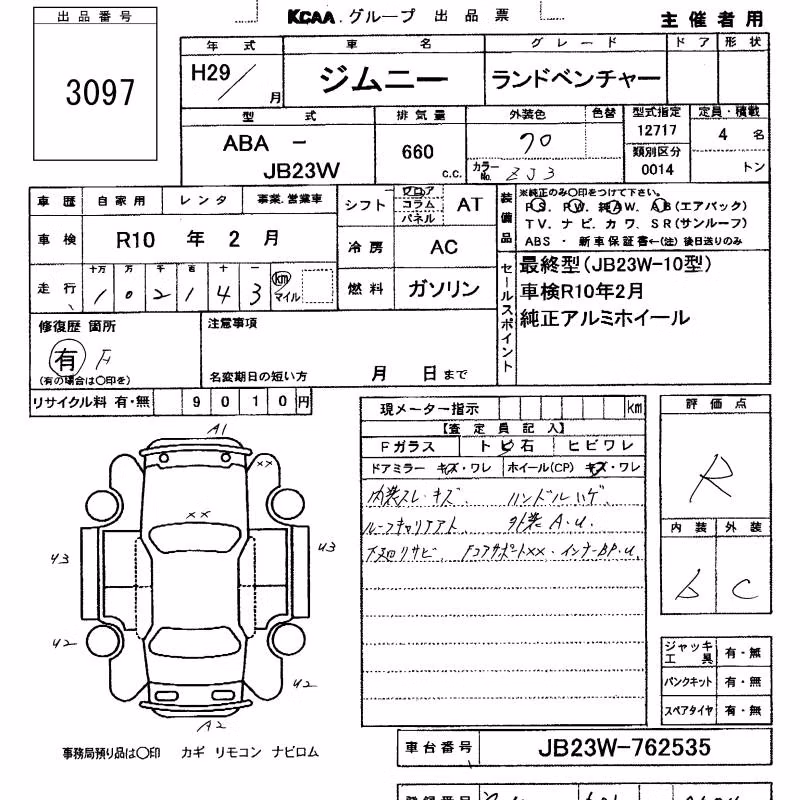 出品番号
3097
KCAA.グループ 出品票
主催者用
年式 車名 グレード ドア 形状
H29/ 月 ジムニー ランドベンチャー
型式 排気量 外装色 色替 型式指定 定員・積載
ABA - JB23W 660 c.c. クロ カラーNo. ZJ3 12717 4 名
類別区分 0014 トン
車歴 自家用 レンタ 事業.営業車
車検 R10 年 2 月
走行 十万 万 千 百 十 一
1 0 2 1 4 3 km マイル
シフト フロア コラム パネル AT
冷房 AC
燃料 ガソリン
装備品 ※純正のみ〇印をつけて下さい。
PS. PW. 純AW. AB(エアバック)
TV. ナビ. カワ. SR(サンルーフ)
ABS ・ 新車保証書←(注) 後日送りのみ
セールスポイント
最終型(JB23W-10型)
車検R10年2月
純正アルミホイール
修復歴 箇所
有 F
(有の場合は〇印を)
注意事項
名変期日の短い方 月 日まで
リサイクル料 有・無 9010円
現メーター指示 km
【査定員記入】
Fガラス トビ石 ヒビワレ
ドアミラー キズ・ワレ ホイール(CP) キズ・ワレ
内装スレ・キズ ハンドルハゲ
ルーフキャリアアト 外装A.U.
下廻りサビ Fコアサポートxx・インナーBP.U
評価点
R
内装 外装
b C
ジャッキ工具 有・無
パンクキット 有・無
スペアタイヤ 有・無
A1
xx
xx
43
43
42
42
A2
事務局預り品は〇印 カギ リモコン ナビロム
車台番号 JB23W-762535